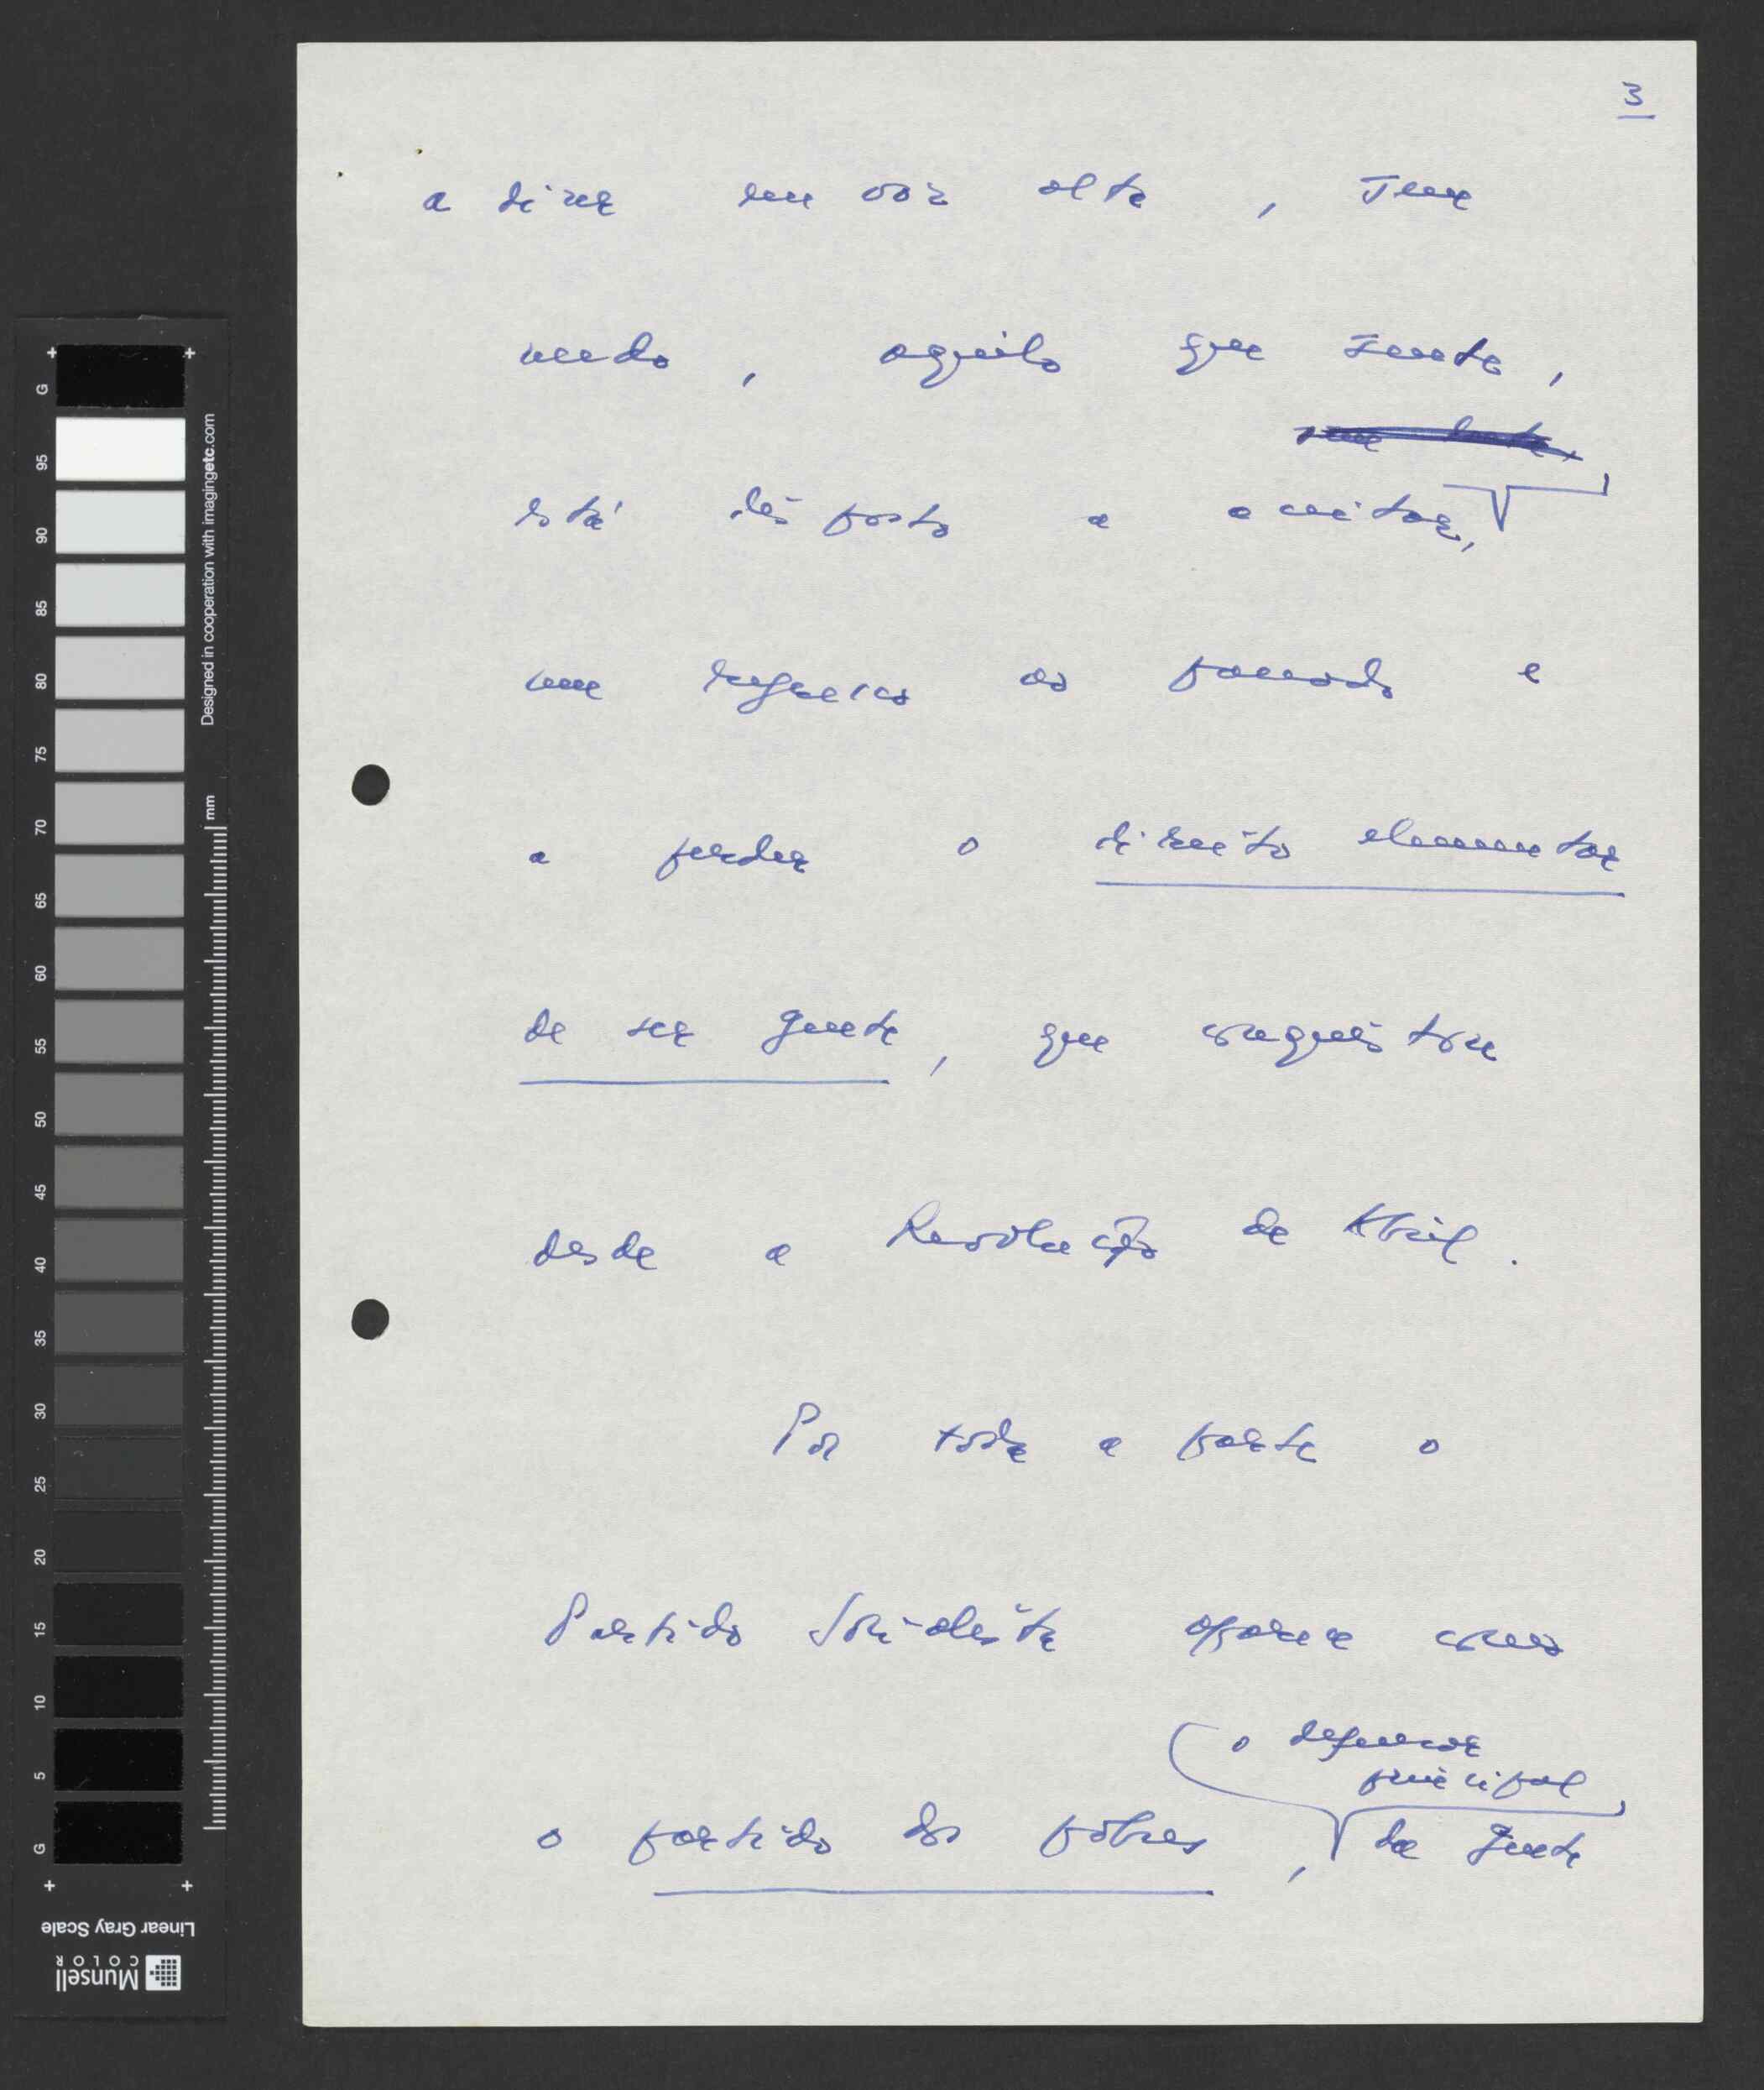 3
a dizer em voz alta, sem
medo, aquilo que sente,
está disposto a aceitar,
um regresso ao passado e
a perder o direito elementar
de ser gente, que conquistou
desde a Revolução de Abril.
Por toda a parte o
Partido Socialista aparece como
o defensor
principal
o partido dos pobres, da gente
+ +
G
95
90
85
80
75
70
65
60
55
50
45
40
35
30
25
20
15
10
5
G
+ +
Designed in cooperation with imagingetc.com
mm
Linear Gray Scale
Munsell
COLOR